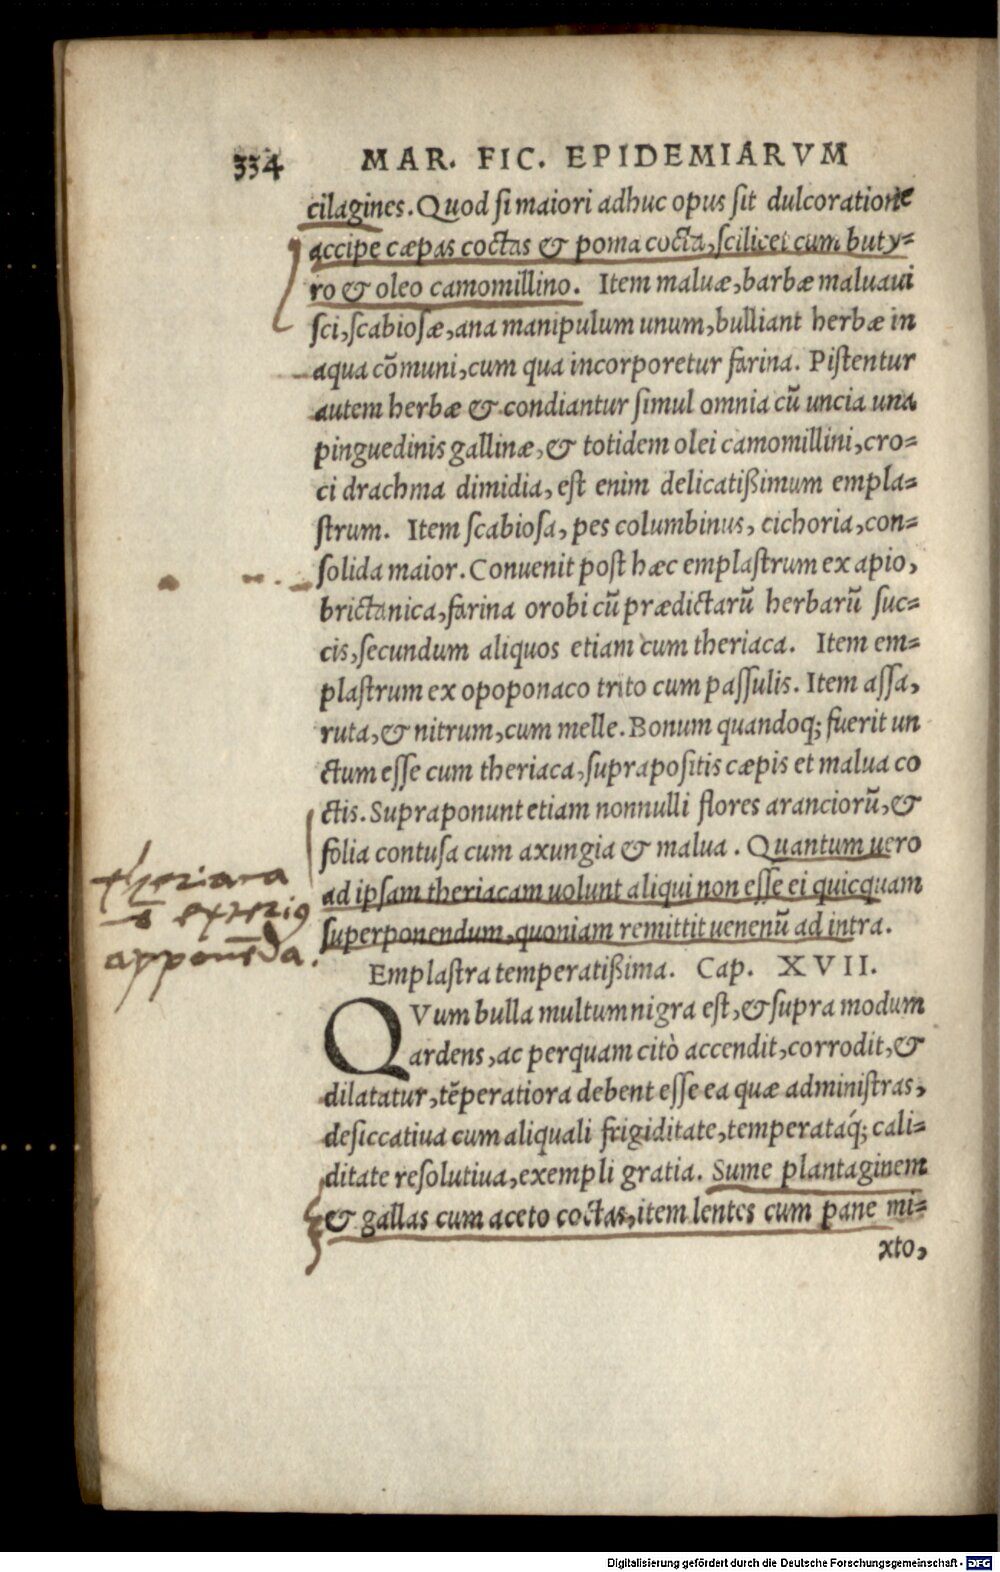 334 MAR. FIC. EPIDEMIARVM
cilagines. Quod si maiori adhuc opus sit dulcoratione
accipe cæpas coctas & poma cocta, scilicet cum buty=
ro & oleo camomillino. Item maluæ, barbæ maluaui
sci, scabiosæ, ana manipulum unum, bulliant herbæ in
aqua cõmuni, cum qua incorporetur farina. Pistentur
autem herbæ & condiantur simul omnia cũ uncia una
pinguedinis gallinæ, & totidem olei camomillini, cro=
ci drachma dimidia, est enim delicatißimum empla=
strum. Item scabiosa, pes columbinus, cichoria, con=
solida maior. Conuenit post hæc emplastrum ex apio,
brictanica, farina orobi cũ prædictarũ herbarũ suc=
cis, secundum aliquos etiam cum theriaca. Item em=
plastrum ex opoponaco trito cum passulis. Item assa,
ruta, & nitrum, cum melle. Bonum quandoq; fuerit un
ctum esse cum theriaca, suprapositis cæpis et malua co
ctis. Supraponunt etiam nonnulli flores aranciorũ, &
folia contusa cum axungia & malua. Quantum uero
ad ipsam theriacam uolunt aliqui non esse ei quicquam
superponendum, quoniam remittit uenenũ ad intra.
theriaca
exterius
apponẽda.
Emplastra temperatißima. Cap. XVII.
QVum bulla multum nigra est, & supra modum
ardens, ac perquam citò accendit, corrodit, &
dilatatur, tẽperatiora debent esse ea quæ administras,
desiccatiua cum aliquali frigiditate, temperataq́; cali=
ditate resolutiua, exempli gratia. Sume plantaginem
& gallas cum aceto coctas, item lentes cum pane mi=
xto,
Digitalisierung gefördert durch die Deutsche Forschungsgemeinschaft - DFG